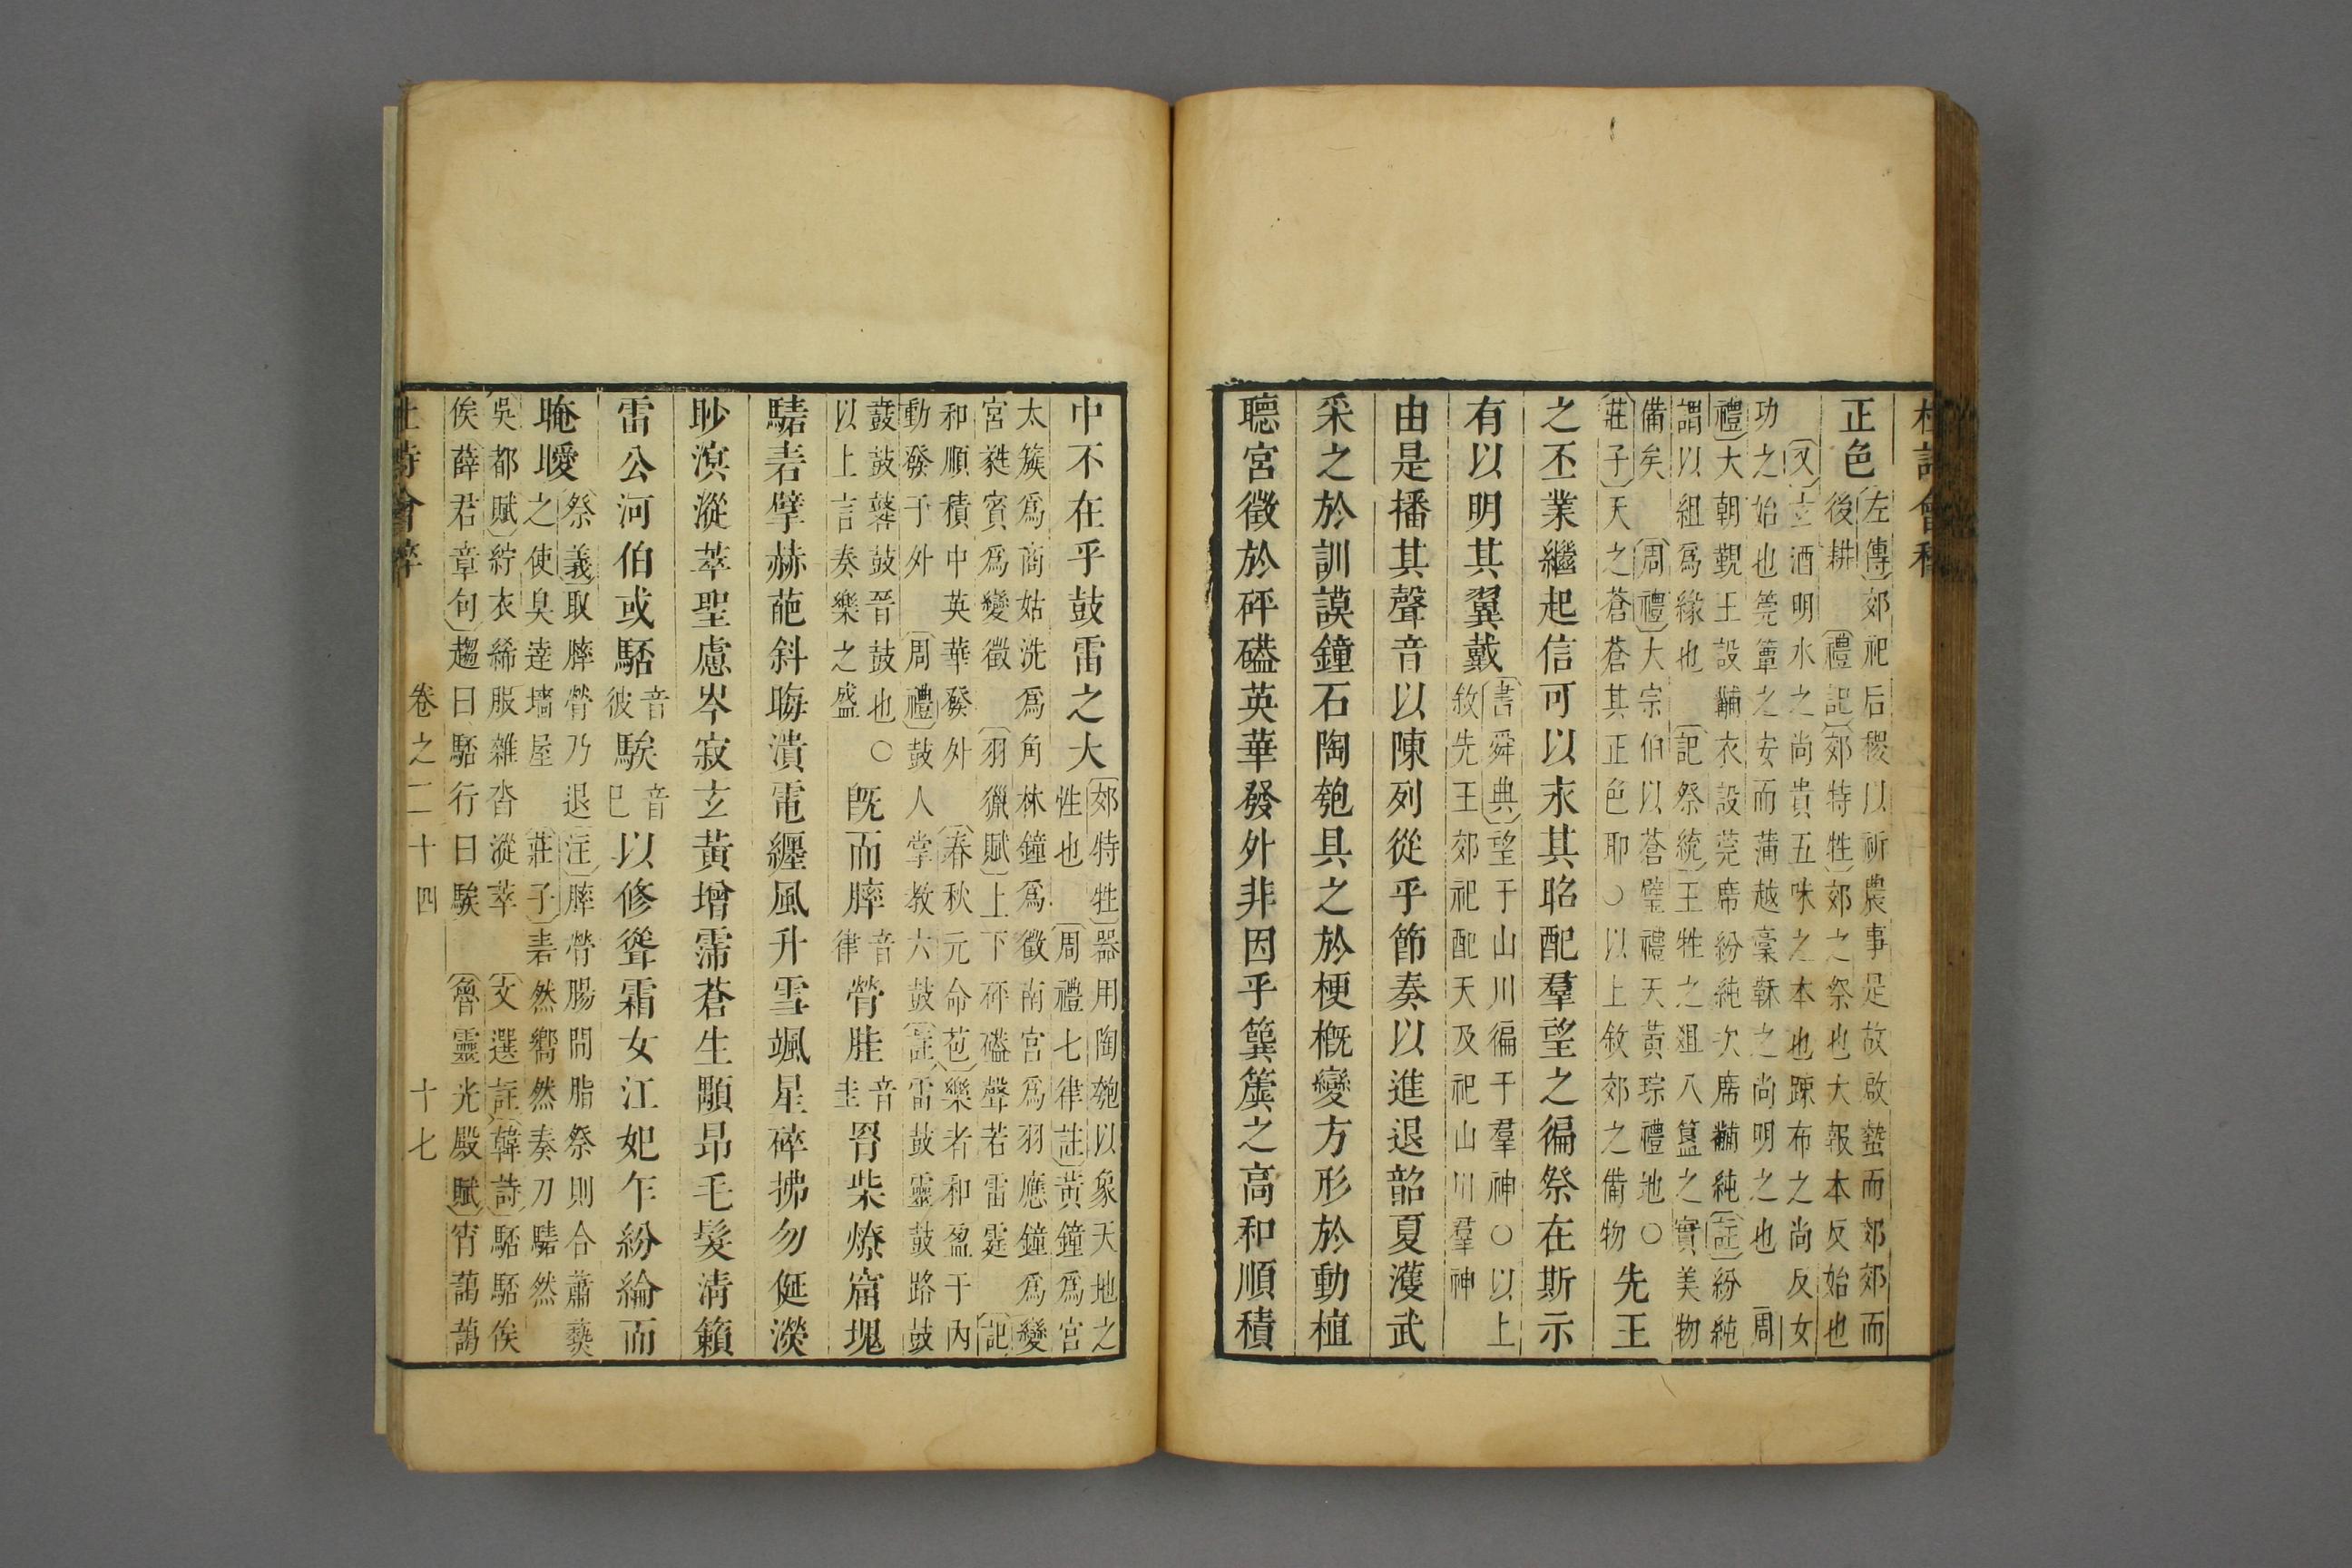 正色左傳郊祀后稷以祈農事是故啟蟄而郊郊而
後耕　禮記郊特牲郊之祭也大報本反始也
又玄酒明水之尚貴五味之本也踈布之尚反女
功之始也莞簟之安而蒲越稾鞂之尚明之也　周
禮大朝覲王設黼衣設莞席紛純次席黼純註紛純
謂以組爲緣也　記祭統王牲之俎八簋之實美物
備矣　周禮大宗伯以蒼璧禮天黃琮禮地○
莊子天之蒼蒼其正色耶○以上敘郊之備物先王
之丕業繼起信可以永其昭配羣望之徧祭在斯示
有以明其翼戴書舜典望于山川徧于羣神○以上
敘先王郊祀配天及祀山川羣神
由是播其聲音以陳列從乎節奏以進退韶夏濩武
采之於訓謨鐘石陶匏具之於梗概變方形於動植
聽宮徵於砰磕英華發外非因乎簨簴之高和順積
中不在乎鼓雷之大郊特牲器用陶匏以象天地之
性也　周禮七律註黃鐘爲宮
太簇爲商姑洗爲角林鐘爲徵南宮爲羽應鐘爲變
宮蕤賓爲變徵　羽獵賦上下砰磕聲若雷霆　記
和順積中英華發外　春秋元命苞樂者和盈于內
動發于外　周禮鼓人掌教六鼓註雷鼓靈鼓路鼓
鼖鼓鼛鼓晉鼓也○
以上言奏樂之盛既而膟音律膋胿音圭罥柴燎窟塊
騞砉擘赫葩斜晦潰電纏風升雪颯星碎拂勿侹濙
眇溟漎萃聖慮岑寂玄黃增霈蒼生顒昂毛髮清籟
雷公河伯或駓音彼騃音巳以修聳霜女江妃乍紛綸而
晻曖祭義取膟膋乃退注膟膋腸間脂祭則合蕭爇
之使臭達墻屋　莊子砉然嚮然奏刀騞然
吳都賦紵衣絺服雜沓漎萃　文選註韓詩駓駓俟
俟薛君章句趨曰駓行曰騃　魯靈光殿賦宵藹藹
卷之二十四　十七